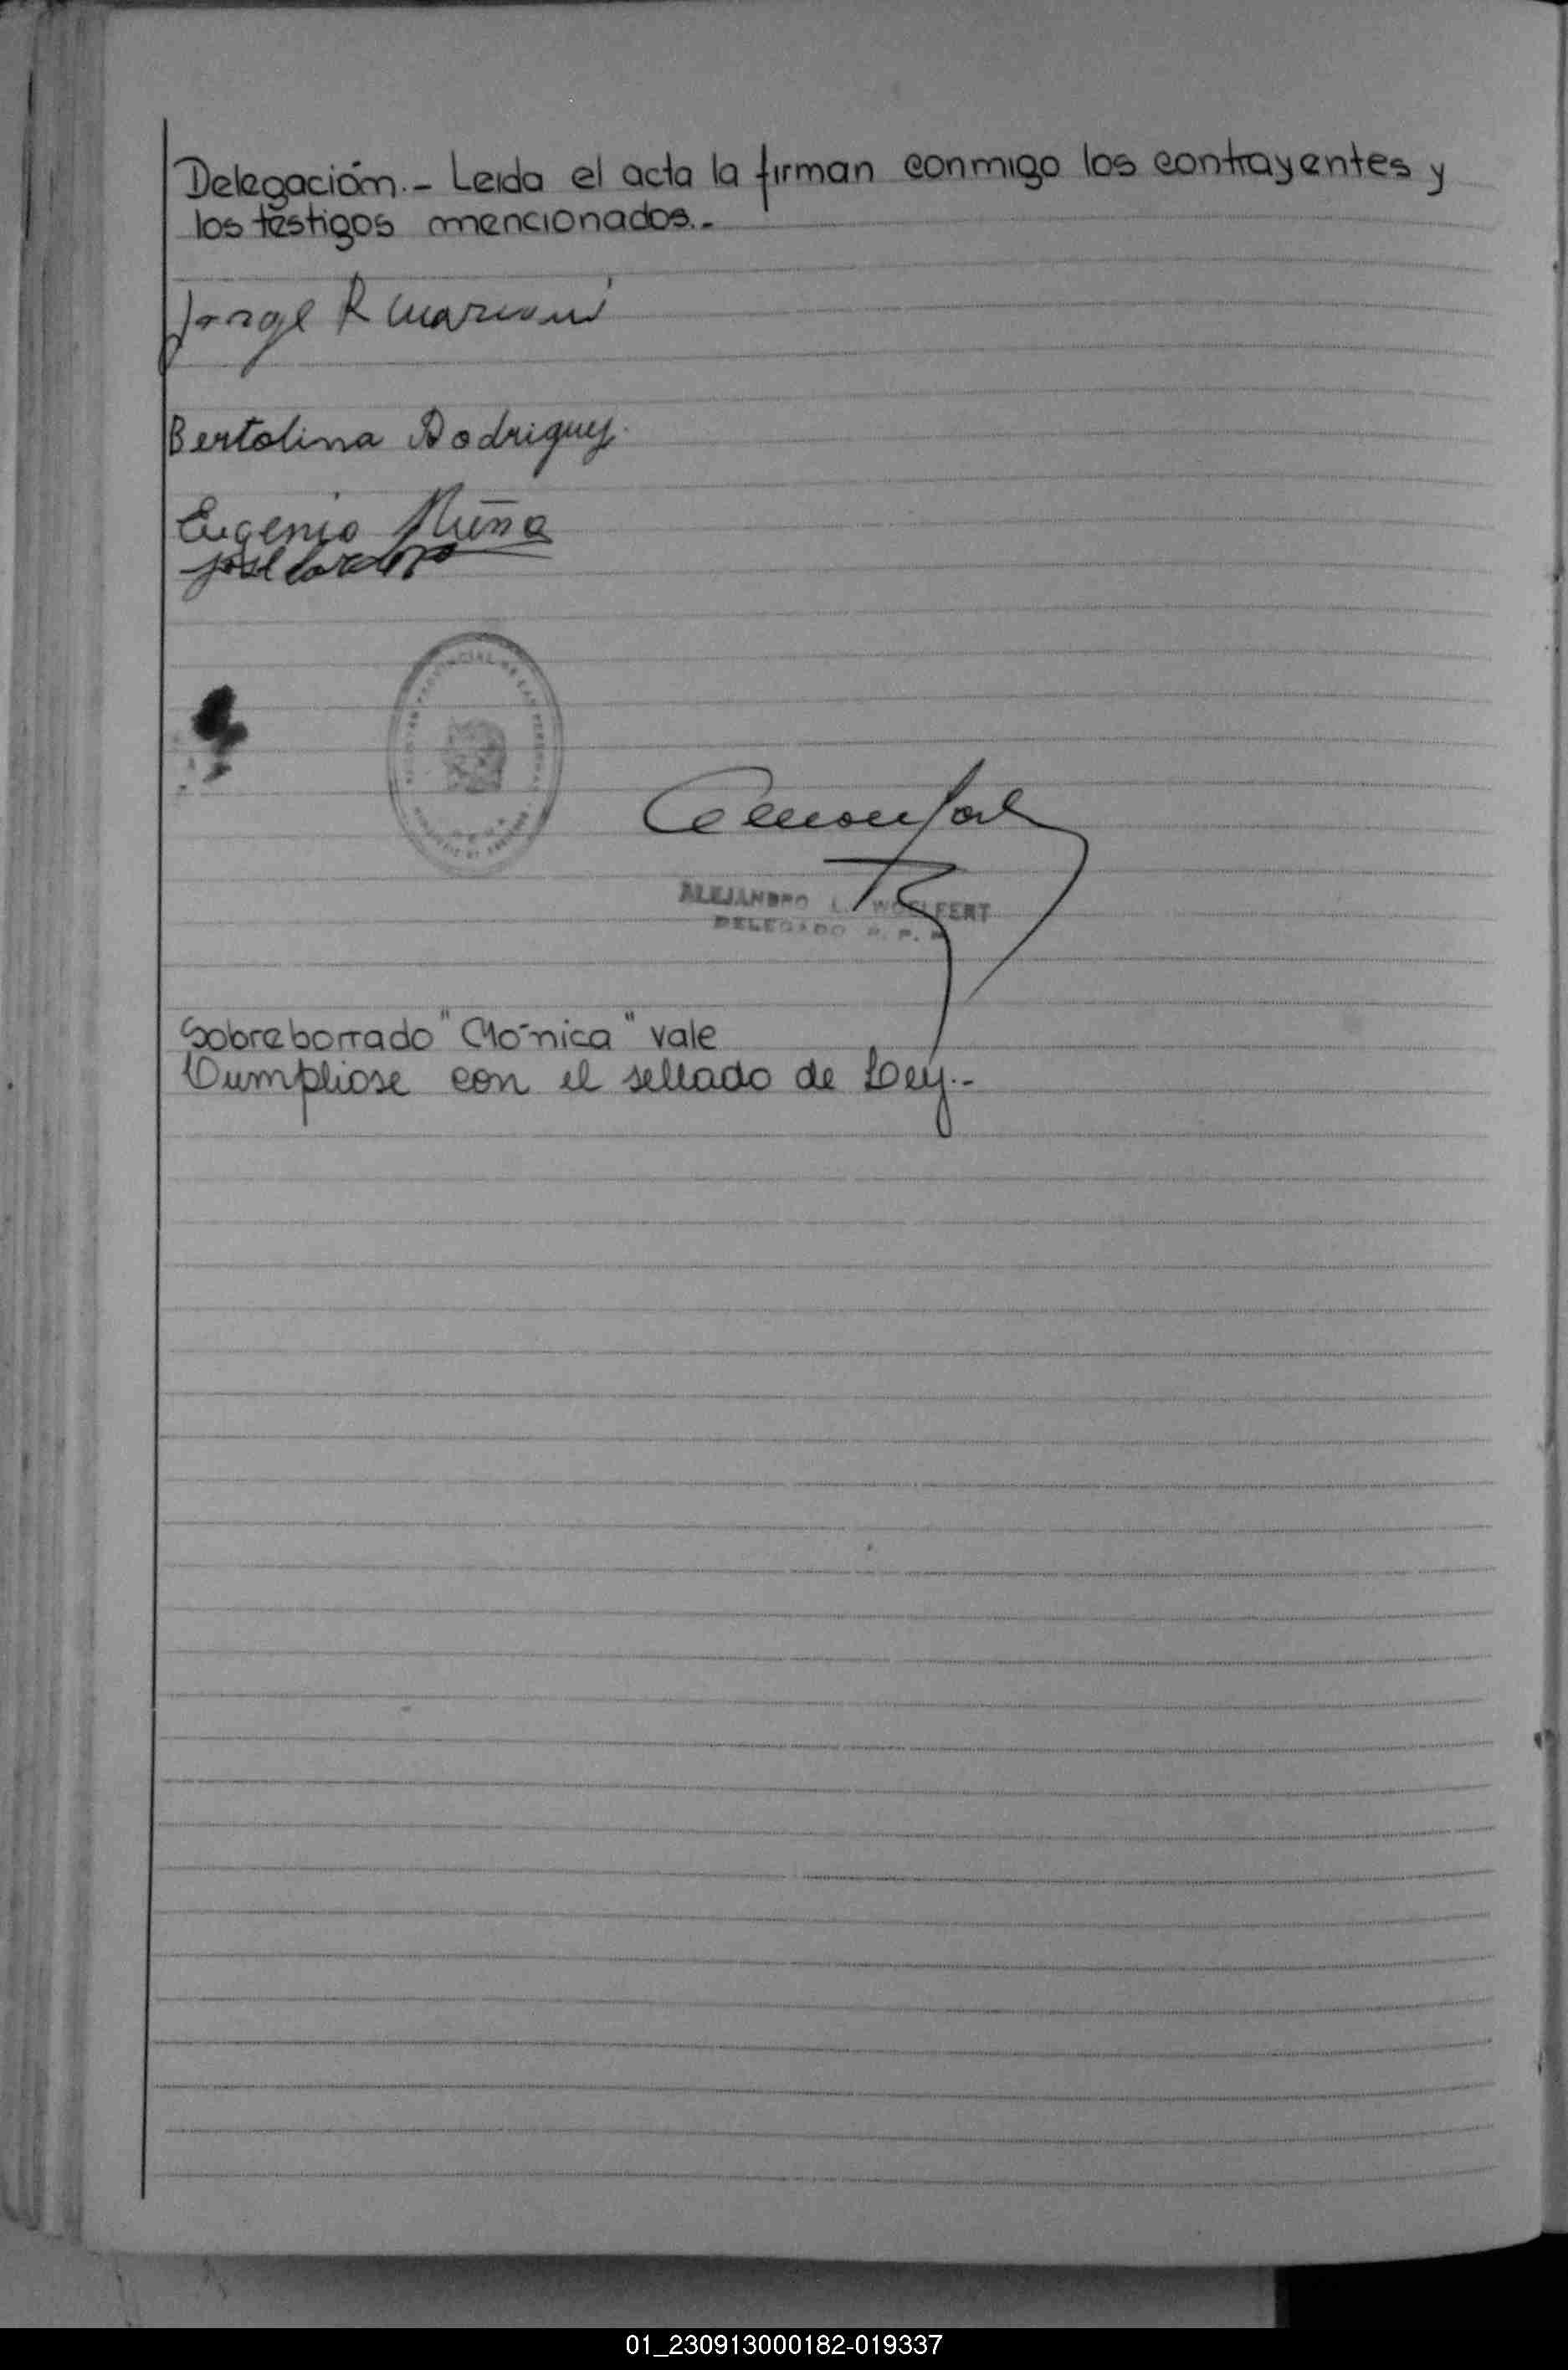 Delegación.- Leida el acta la firman conmigo los contrayentes y
los testigos mencionados.-
Jorge R
Bertolina Rodriguez
Eugenio Muña
José
ALEJANDRO L. WOELFERT
DELEGADO R. P.
Sobreborrado "Mónica" vale
Cumpliose con el sellado de Ley.-
01_230913000182-019337